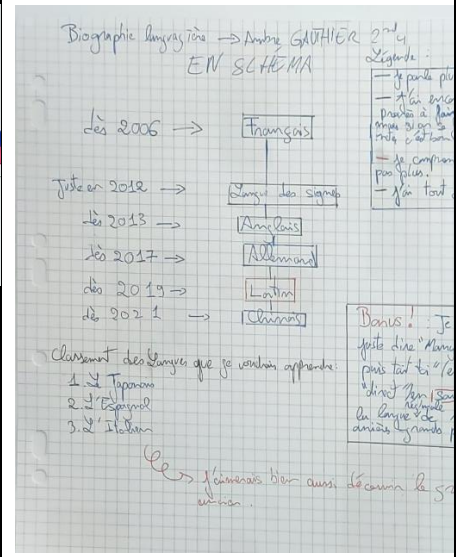 Biographie langagière → Ambre GAUTHIER 2nd4
EN SCHÉMA
Légende :
— Je parle plu
— J'ai enco
— Je compren
pas plus.
— J'ai tout
dès 2006 → Français
Juste en 2012 → Langue des signes
dès 2013 → Anglais
dès 2017 → Allemand
dès 2019 → Latin
dès 2021 → Chinois
Bonus ! : Je
juste dire "Mam
puis tait toi" (e
"direct") en
la langue de
arrières grands p
Classement des langues que je voudrais apprendre :
1. Le Japonais
2. L'Espagnol
3. L'Italien
J'aimerais bien aussi découvrir le
ancien.